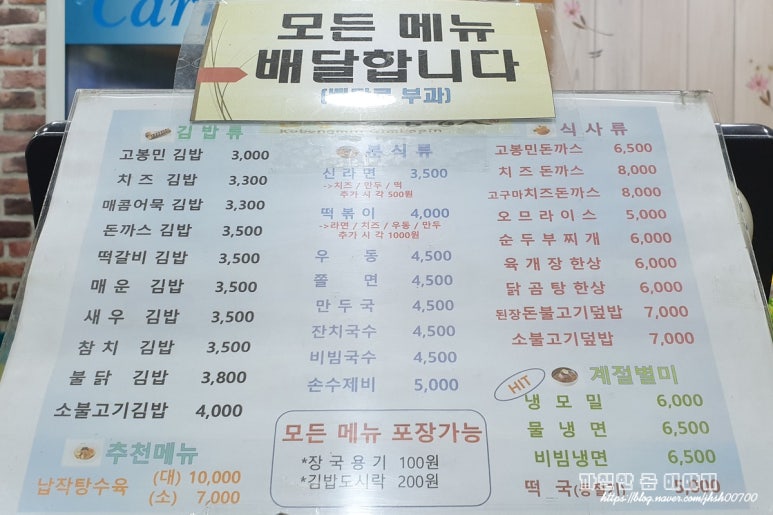 Car
모든 메뉴
배달합니다
(배달료 부과)
김밥류
고봉민 김밥 3,000
치즈 김밥 3,300
매콤어묵 김밥 3,300
돈까스 김밥 3,500
떡갈비 김밥 3,500
매운 김밥 3,500
새우 김밥 3,500
참치 김밥 3,500
불닭 김밥 3,800
소불고기김밥 4,000
추천메뉴
납작탕수육 (대) 10,000
(소) 7,000
분식류
신라면 3,500
->치즈 / 만두 / 떡
추가 시 각 500원
떡볶이 4,000
->라면 / 치즈 / 우동 / 만두
추가 시 각 1000원
우동 4,500
쫄면 4,500
만두국 4,500
잔치국수 4,500
비빔국수 4,500
손수제비 5,000
모든 메뉴 포장가능
*장국용기 100원
*김밥도시락 200원
식사류
고봉민돈까스 6,500
치즈돈까스 8,000
고구마치즈돈까스 8,000
오므라이스 5,000
순두부찌개 6,000
육개장한상 6,000
닭곰탕한상 6,000
된장돈불고기덮밥 7,000
소불고기덮밥 7,000
HIT
계절별미
냉모밀 6,000
물냉면 6,500
비빔냉면 6,500
떡국 5,300
https://blog.naver.com/jhsh00700